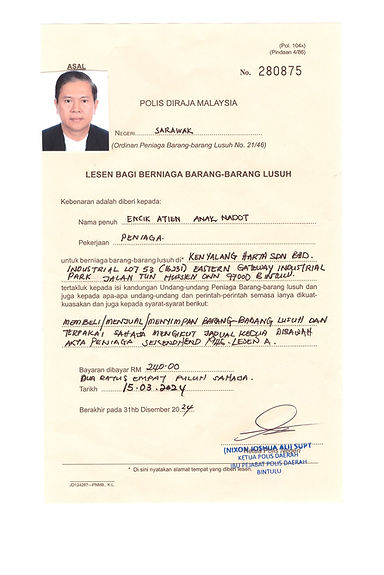 (Pol. 104A)
(Pindaan 4/86)
ASAL
No. 280875
POLIS DIRAJA MALAYSIA
NEGERI SARAWAK
(Ordinan Peniaga Barang-barang Lusuh No. 21/46)
LESEN BAGI BERNIAGA BARANG-BARANG LUSUH
Kebenaran adalah diberi kepada:
Nama penuh ENCIK ATIEN ANAK NADOT
Pekerjaan PENIAGA.
untuk berniaga barang-barang lusuh di* KENYALANG HARTA SDN BHD.
INDUSTRIAL LOT 53 EASTERN GATEWAY INDUSTRIAL
PARK JALAN TUN HUSSEIN ONN 97000 BINTULU.
tertakluk kepada isi kandungan Undang-undang Peniaga Barang-barang lusuh dan
juga kepada apa-apa undang-undang dan perintah-perintah semasa ianya dikuat-
kuasakan dan juga kepada syarat-syarat berikut:
MEMBELI/MENJUAL/MENYIMPAN BARANG-BARANG LUSUH DAN
TERPAKAI SAHAJA MENGIKUT JADUAL KEDUA DIBAWAH
AKTA PENIAGA 1946. LESEN A.
Bayaran dibayar RM 240.00
DUA RATUS EMPAT PULUH SAHAJA.
Tarikh 15.03.2024
Berakhir pada 31hb Disember 20 24
Ketua Polis
(NIXON JOSHUA ALI) SUPT
KETUA POLIS DAERAH
IBU PEJABAT POLIS DAERAH
BINTULU
* Di sini nyatakan alamat tempat yang diberi lesen.
JD124267—PNMB., K.L.